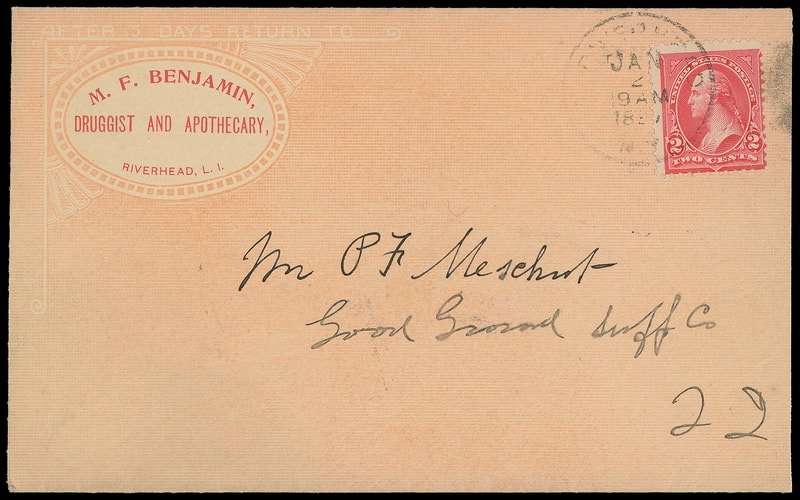 AFTER 5 DAYS RETURN TO
M. F. BENJAMIN,
DRUGGIST AND APOTHECARY,
RIVERHEAD, L. I.
JAN
2
9 AM
N.Y.
UNITED STATES POSTAGE
2 2
TWO CENTS
Mr P F Meschut
Good Ground Suff Co
L I